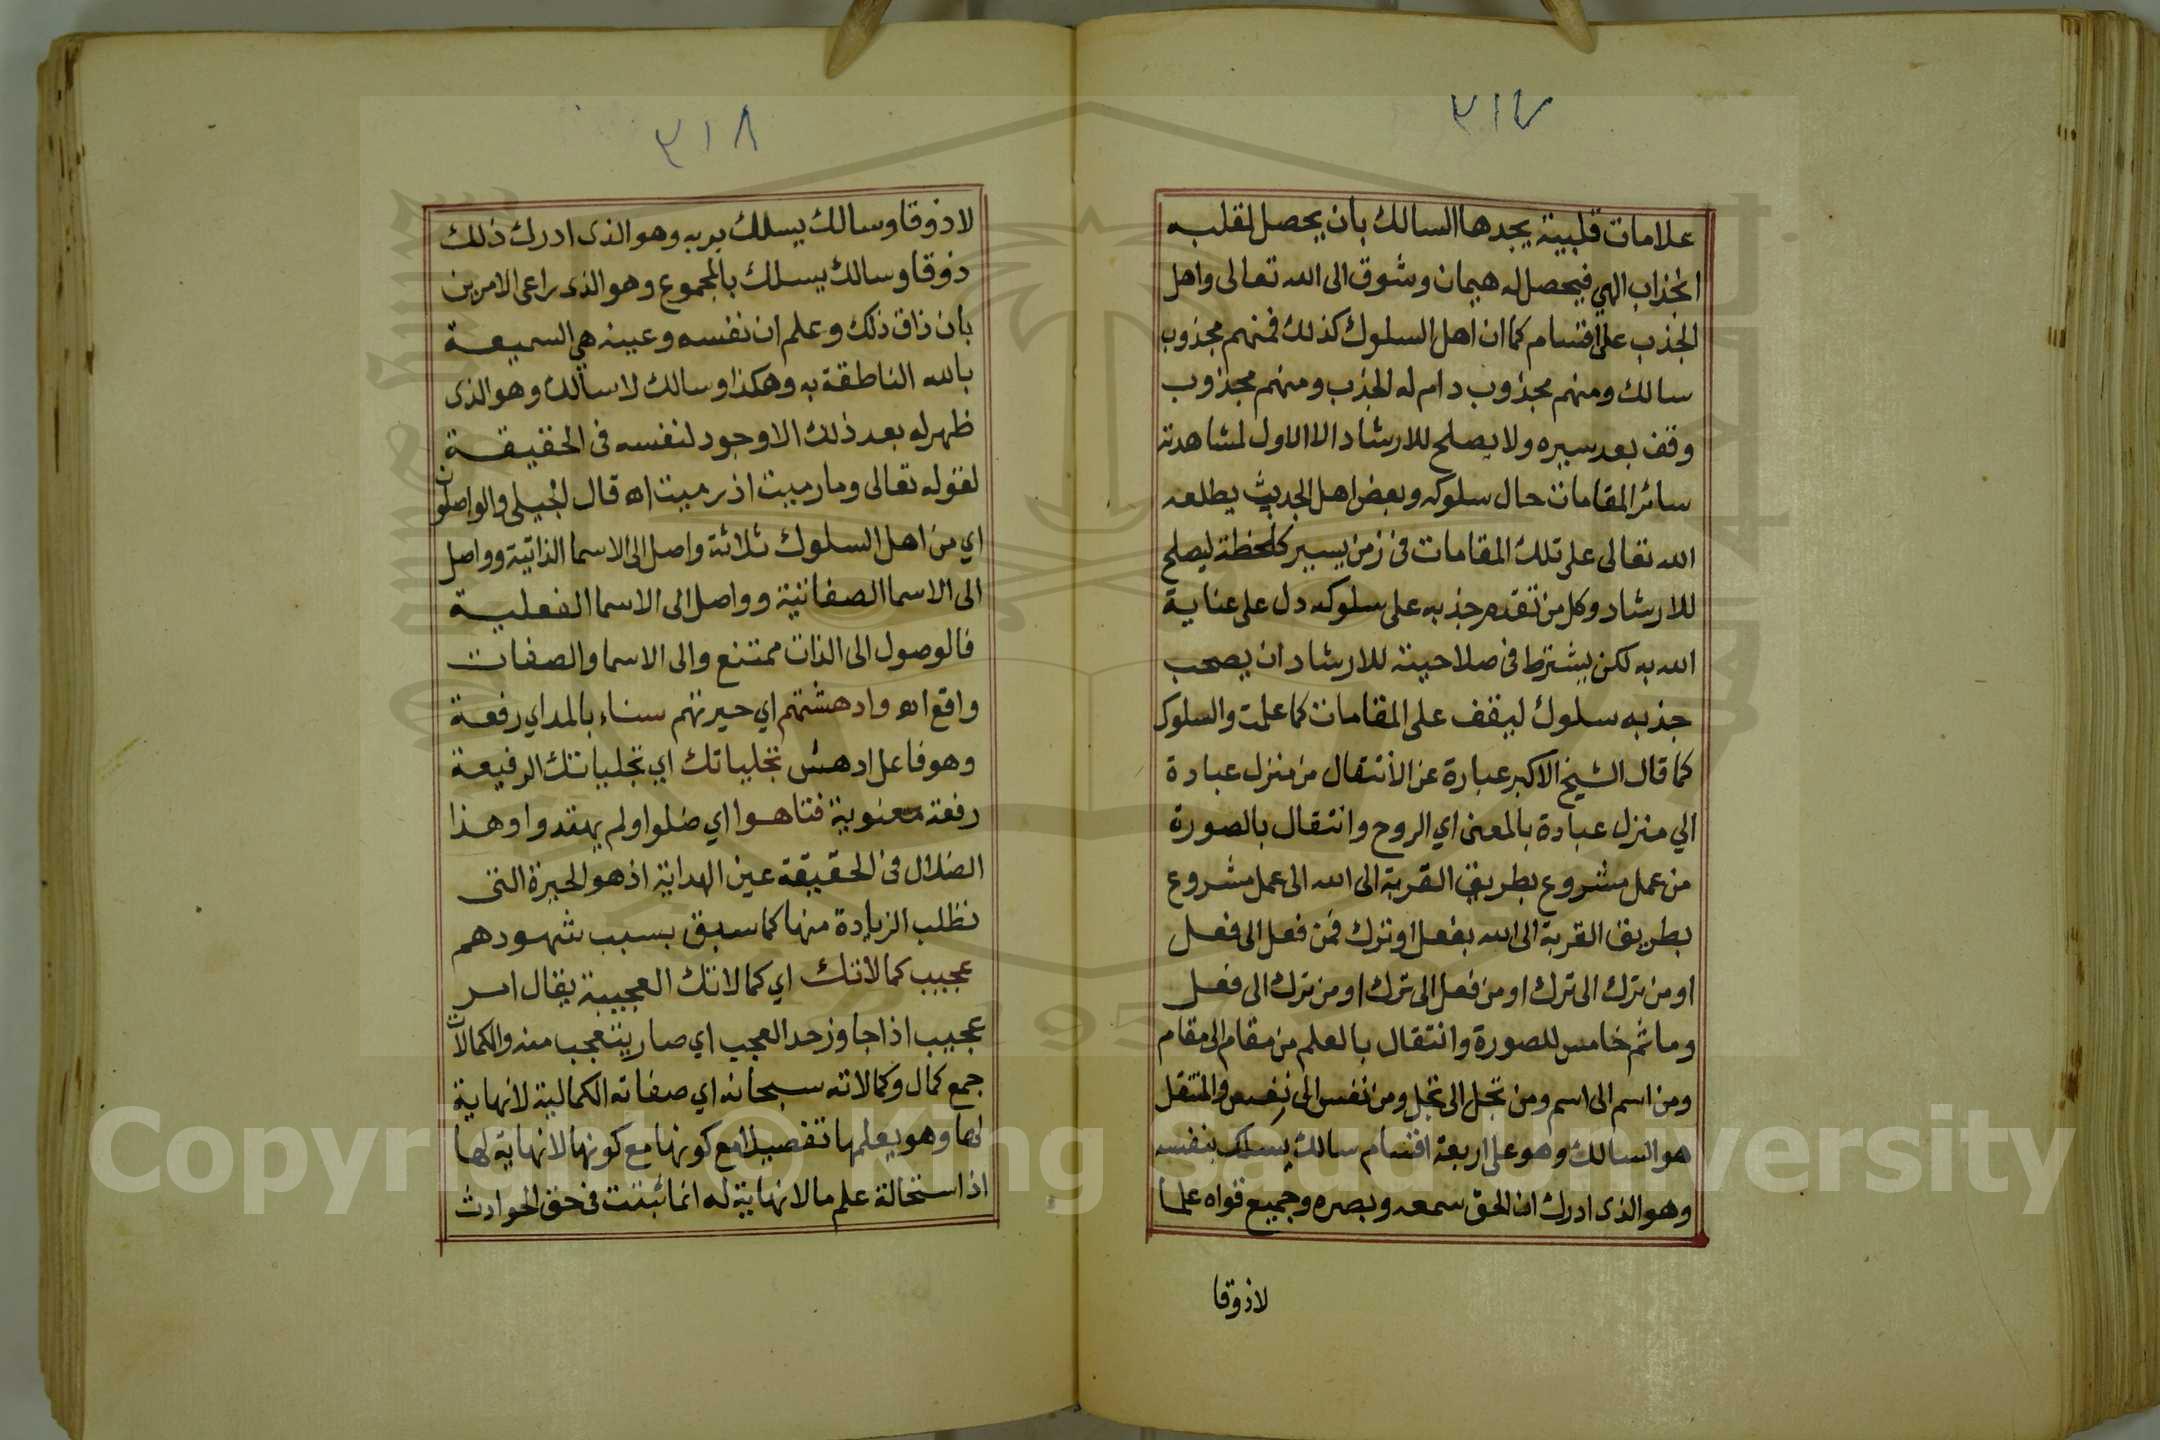 ٣١٧
علامات قلبية يجدها السالك بان يحصل لقلبه
انجذاب الهي فيحصل له هيمان وشوق الى الله تعالى واهل
الجذب على اقسام كما ان اهل السلوك كذلك فمنهم مجذوب
سالك ومنهم مجذوب دام له الجذب ومنهم مجذوب
وقف بعد سيره ولا يصلح للارشاد الا الاول لمشاهدته
سائر المقامات حال سلوكه وبعض اهل الجذب يطلعه
الله تعالى على تلك المقامات في زمن يسير كلحظة ليصلح
للارشاد وكل من تقدم جذبه على سلوكه دل على عناية
الله به لكن يشترط في صلاحيته للارشاد ان يصحب
جذبه سلوك ليقف على المقامات كما علمت والسلوك
كما قال الشيخ الاكبر عبارة عن الأنتقال من منزل عبادة
الي منزل عبادة بالمعنى اي الروح وانتقال بالصورة
من عمل مشروع بطريق القربة الى الله الى عمل مشروع
بطريق القربة الى الله بفعل او ترك فمن فعل الى فعل
او من ترك الى ترك او من فعل الى ترك او من ترك الى فعل
وما ثم خامس للصورة وانتقال بالعلم من مقام الى مقام
ومن اسم الى اسم ومن تجل الى تجل ومن نفس الى نفس والمنتقل
هو السالك وهو على اربعة اقسام سالك يسلك بنفسه
وهو الذى ادرك ان الحق سمعه وبصره وجميع قواه علما
لاذوقا
٣١٨
لاذوقا وسالك يسلك بربه وهو الذى ادرك ذلك
ذوقا وسالك يسلك بالمجموع وهو الذى راعى الامرين
بان ذاق ذلك وعلم ان نفسه وعينه هي السميعة
بالله الناطقة به وهكذا وسالك لا سالك وهو الذى
ظهر له بعد ذلك الا وجود لنفسه في الحقيقة
لقوله تعالى وما رميت اذ رميت اه قال الجيلي والواصلون
اي من اهل السلوك ثلاثة واصل الى الاسما الذاتية وواصل
الى الاسما الصفاتية وواصل الى الاسما الفعلية
فالوصول الى الذات ممتنع والى الاسما والصفات
واقع اه وادهشتهم اي حيرتهم سناء بالمد اي رفعة
وهو فاعل ادهش تجلياتك اي تجلياتك الرفيعة
رفعة معنوية فتاهوا اي ضلوا ولم يهتدوا وهذا
الضلال في الحقيقة عين الهداية اذ هو الحيرة التى
نطلب الزيادة منها كما سبق بسبب شهودهم
عجيب كمالاتك اي كمالاتك العجيبة يقال امر
عجيب اذا جاوز حد العجب اي صار يتعجب منه والكمالات
جمع كمال وكمالاته سبحانه اي صفاته الكمالية لانهاية
لها وهو يعلمها تفصيلا مع كونها مع كونها لانهاية لها
اذ استحالة علم مالانهاية له انما ثبتت في حق الحوادث
Copyright © King Saud University